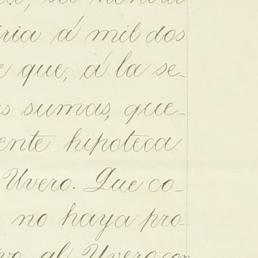 ria á mil dos
que, á la se-
s sumas, que-
ente hipoteca
Uvero. Que co-
no haya pro-
al Uvero con